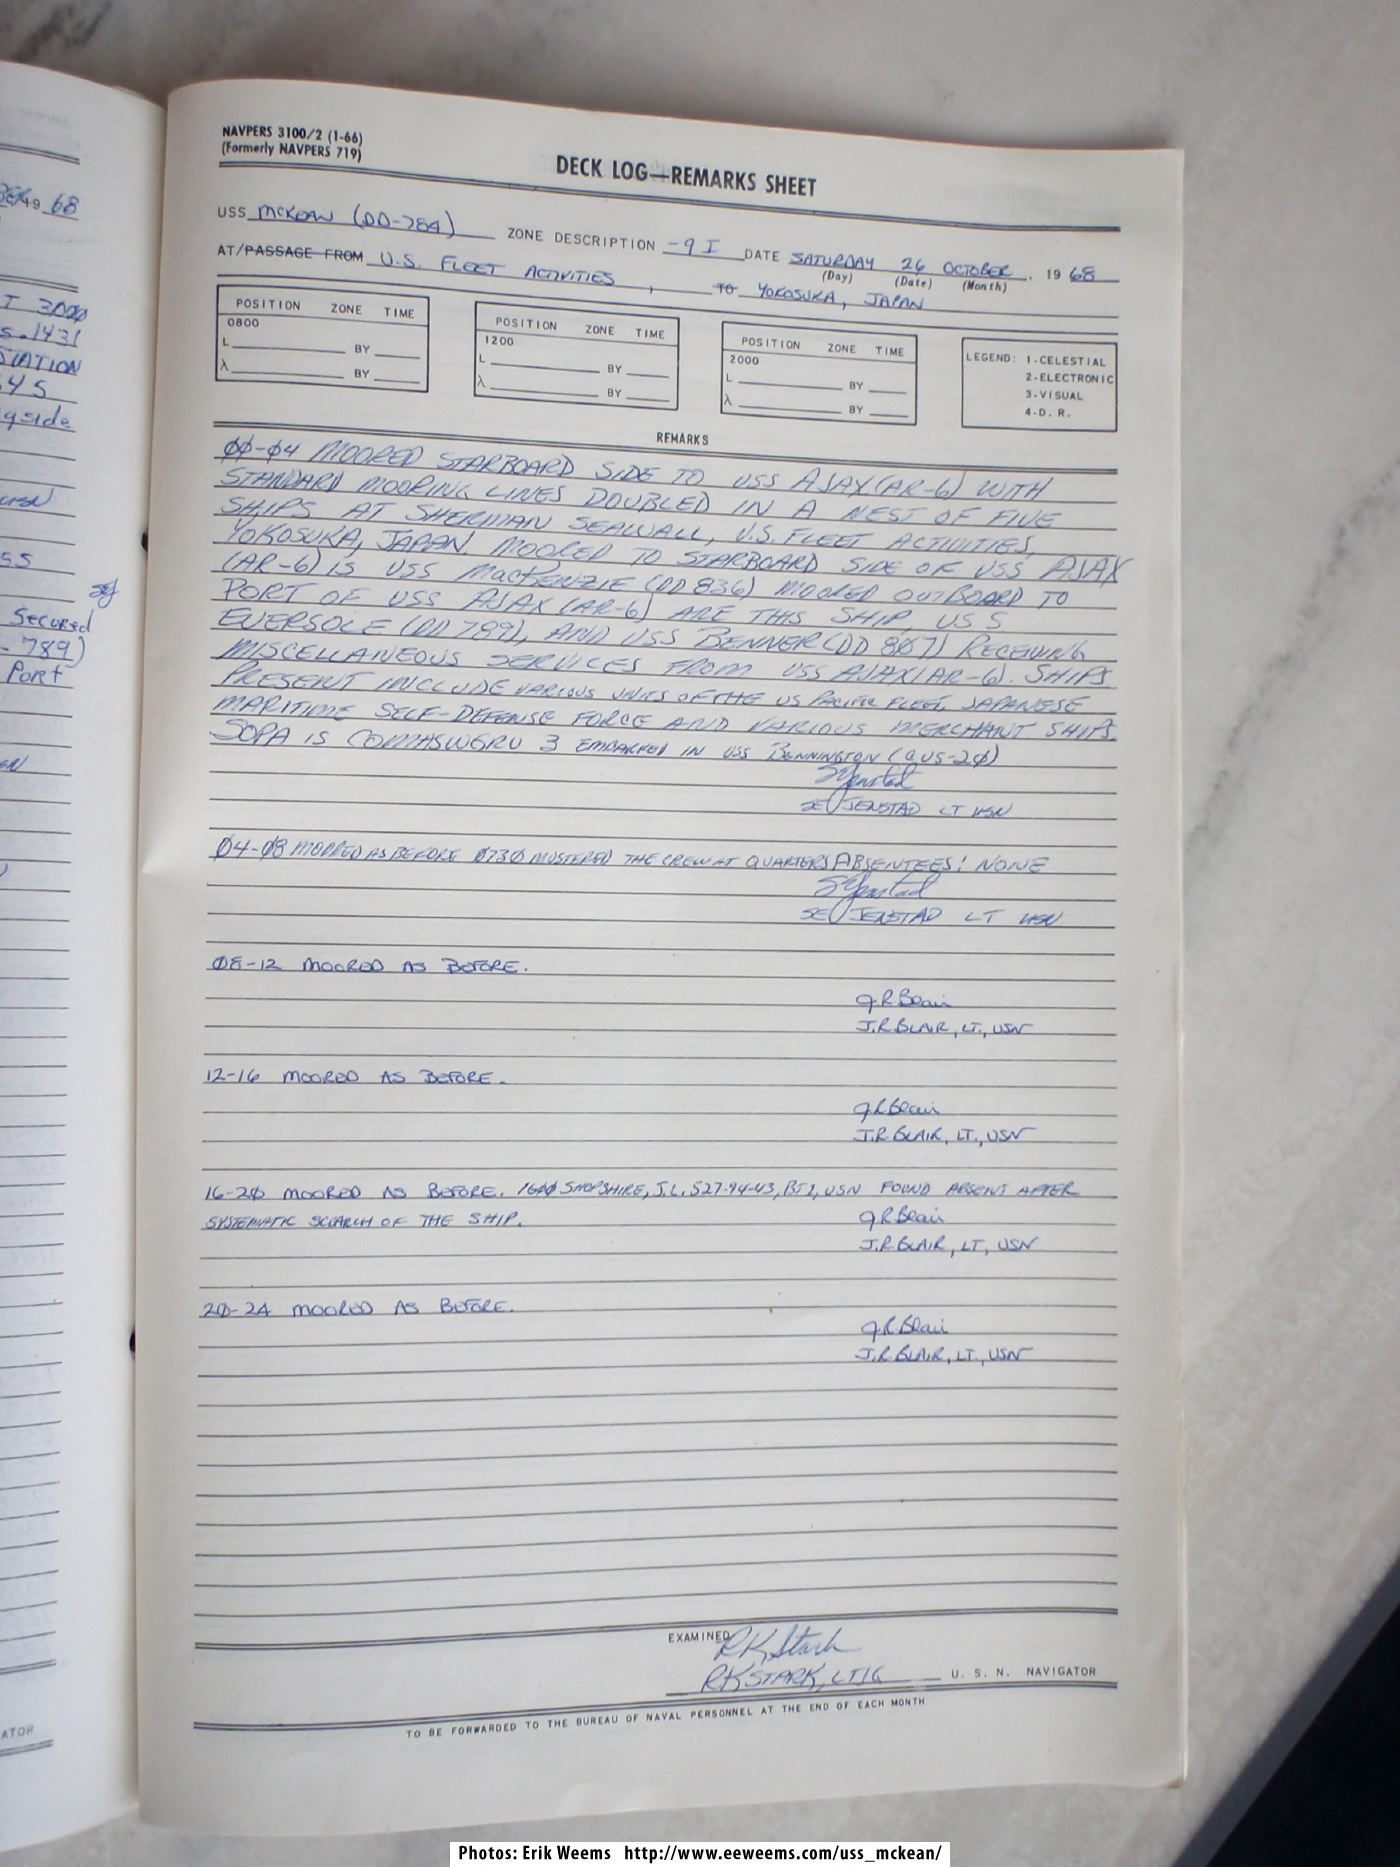 BER 19 68
T 3000
S. 1431
STATION
545
gside
USN
SS
Secured
- 789)
Port
ATOR
NAVPERS 3100/2 (1-66)
(Formerly NAVPERS 719)
DECK LOG—REMARKS SHEET
USS McKEAN (DD-784) ZONE DESCRIPTION -9 I DATE SATURDAY 26 OCTOBER, 1968
(Day) (Date) (Month)
AT/PASSAGE FROM U.S. FLEET ACTIVITIES, TO YOKOSUKA, JAPAN
POSITION ZONE TIME
0800
L BY
λ BY
POSITION ZONE TIME
1200
L BY
λ BY
POSITION ZONE TIME
2000
L BY
λ BY
LEGEND: 1-CELESTIAL
2-ELECTRONIC
3-VISUAL
4-D. R.
REMARKS
00-04 MOORED STARBOARD SIDE TO USS AJAX (AR-6) WITH
STANDARD MOORING LINES DOUBLED IN A NEST OF FIVE
SHIPS AT SHERMAN SEAWALL, U.S. FLEET ACTIVITIES,
YOKOSUKA, JAPAN. MOORED TO STARBOARD SIDE OF USS AJAX
(AR-6) IS USS MACKENZIE (DD 836) MOORED OUTBOARD TO
PORT OF USS AJAX (AR-6) ARE THIS SHIP, USS
EVERSOLE (DD 789), AND USS BENNER (DD 807) RECEIVING
MISCELLANEOUS SERVICES FROM USS AJAX (AR-6). SHIPS
PRESENT INCLUDE VARIOUS UNITS OF THE US PACIFIC FLEET, JAPANESE
MARITIME SELF-DEFENSE FORCE AND VARIOUS MERCHANT SHIPS.
SOPA IS COMASWGRU 3 EMBARKED IN USS BENNINGTON (CVS-20)
SE Jenstad
SE JENSTAD LT USN
04-08 MOORED AS BEFORE 0730 MUSTERED THE CREW AT QUARTERS ABSENTEES: NONE
SE Jenstad
SE JENSTAD LT USN
08-12 MOORED AS BEFORE.
J.R. Blair
J.R. BLAIR, LT., USN
12-16 MOORED AS BEFORE.
J.R. Blair
J.R. BLAIR, LT., USN
16-20 MOORED AS BEFORE. 1600 SHOPSHIRE, J.L. 527-94-43, BT2, USN FOUND ABSENT AFTER
SYSTEMATIC SEARCH OF THE SHIP.
J.R. Blair
J.R. BLAIR, LT, USN
20-24 MOORED AS BEFORE.
J.R. Blair
J.R. BLAIR, LT., USN
EXAMINED
RK Stark
RK STARK, LTJG U. S. N. NAVIGATOR
TO BE FORWARDED TO THE BUREAU OF NAVAL PERSONNEL AT THE END OF EACH MONTH
Photos: Erik Weems http://www.eeweems.com/uss_mckean/